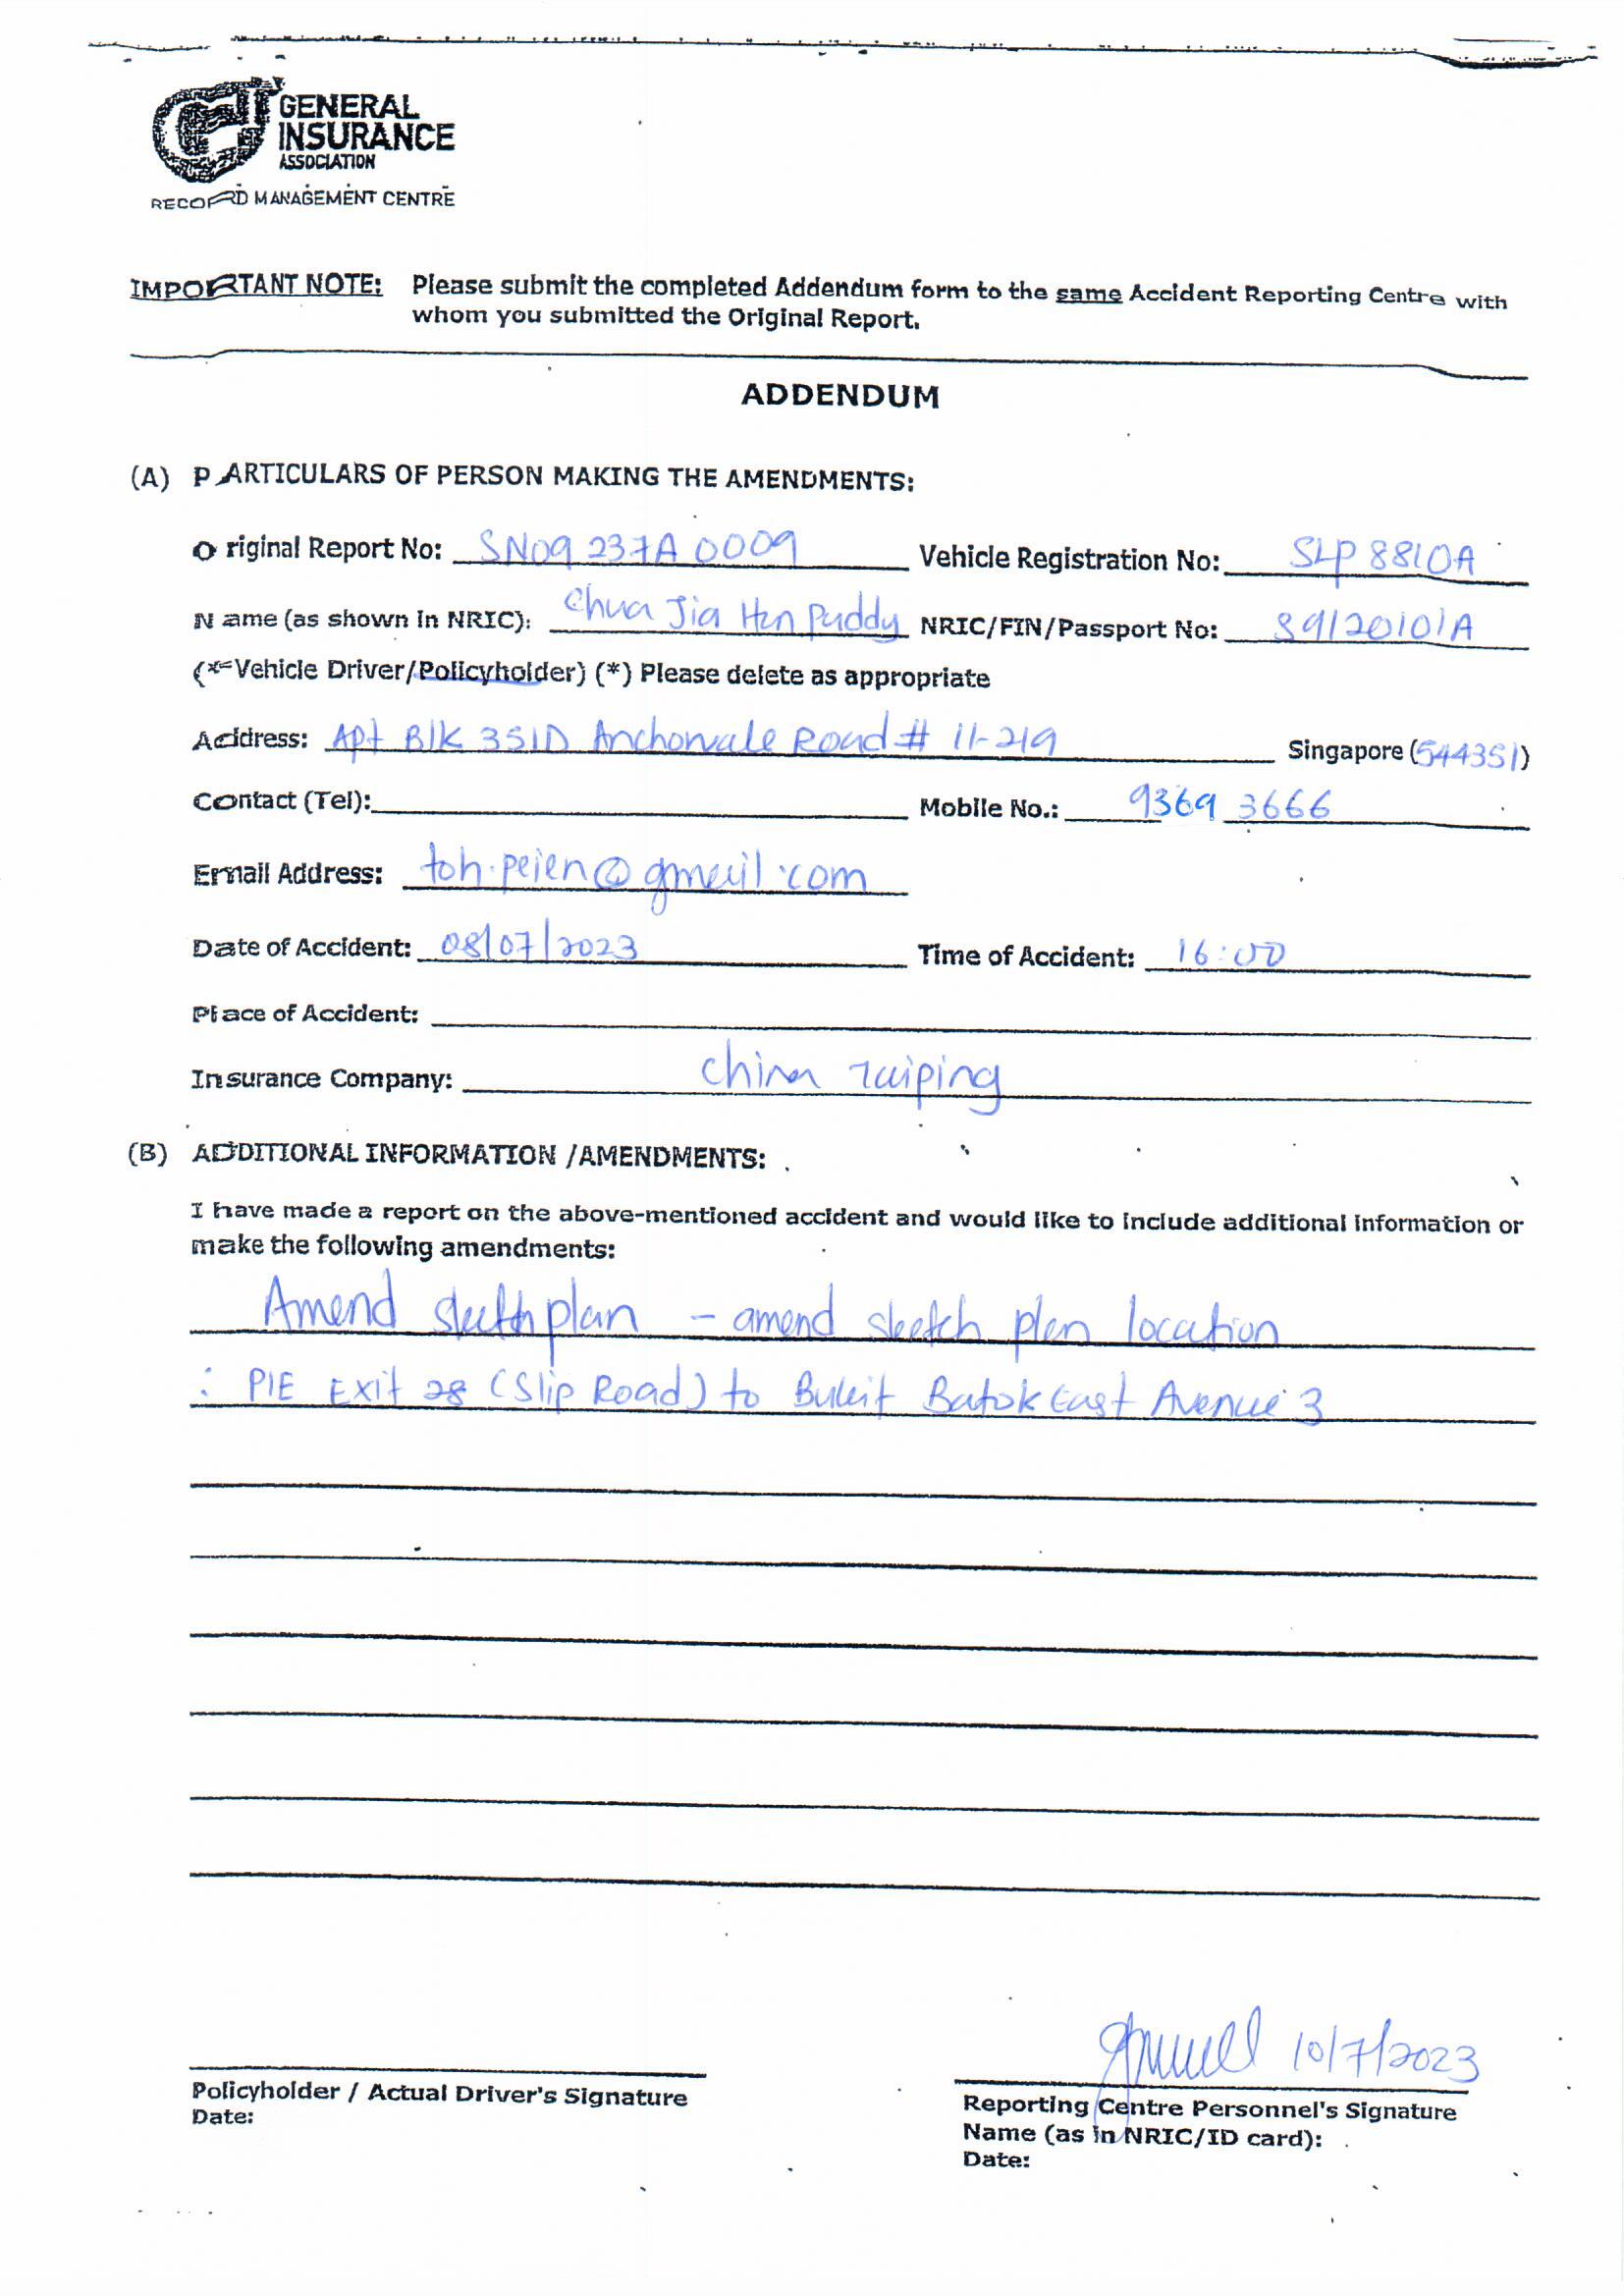 GENERAL
INSURANCE
ASSOCIATION
RECORD MANAGEMENT CENTRE
IMPORTANT NOTE: Please submit the completed Addendum form to the same Accident Reporting Centre with
whom you submitted the Original Report.
ADDENDUM
(A) PARTICULARS OF PERSON MAKING THE AMENDMENTS:
Original Report No: SN09237A0009 Vehicle Registration No: SLP8810A
Name (as shown in NRIC): Chua Jia Hen Puddy NRIC/FIN/Passport No: S9120101A
(*Vehicle Driver/Policyholder) (*) Please delete as appropriate
Address: Apt Blk 351D Anchorvale Road # 11-219 Singapore (544351)
Contact (Tel): Mobile No.: 9369 3666
Email Address: toh.peien@gmail.com
Date of Accident: 08/07/2023 Time of Accident: 16:00
Place of Accident:
Insurance Company: China Taiping
(B) ADDITIONAL INFORMATION /AMENDMENTS:
I have made a report on the above-mentioned accident and would like to include additional information or
make the following amendments:
Amend sketch plan - amend sketch plan location
: PIE Exit 28 (Slip Road) to Bukit Batok East Avenue 3
10/7/2023
Policyholder / Actual Driver's Signature
Date:
Reporting Centre Personnel's Signature
Name (as in NRIC/ID card):
Date: